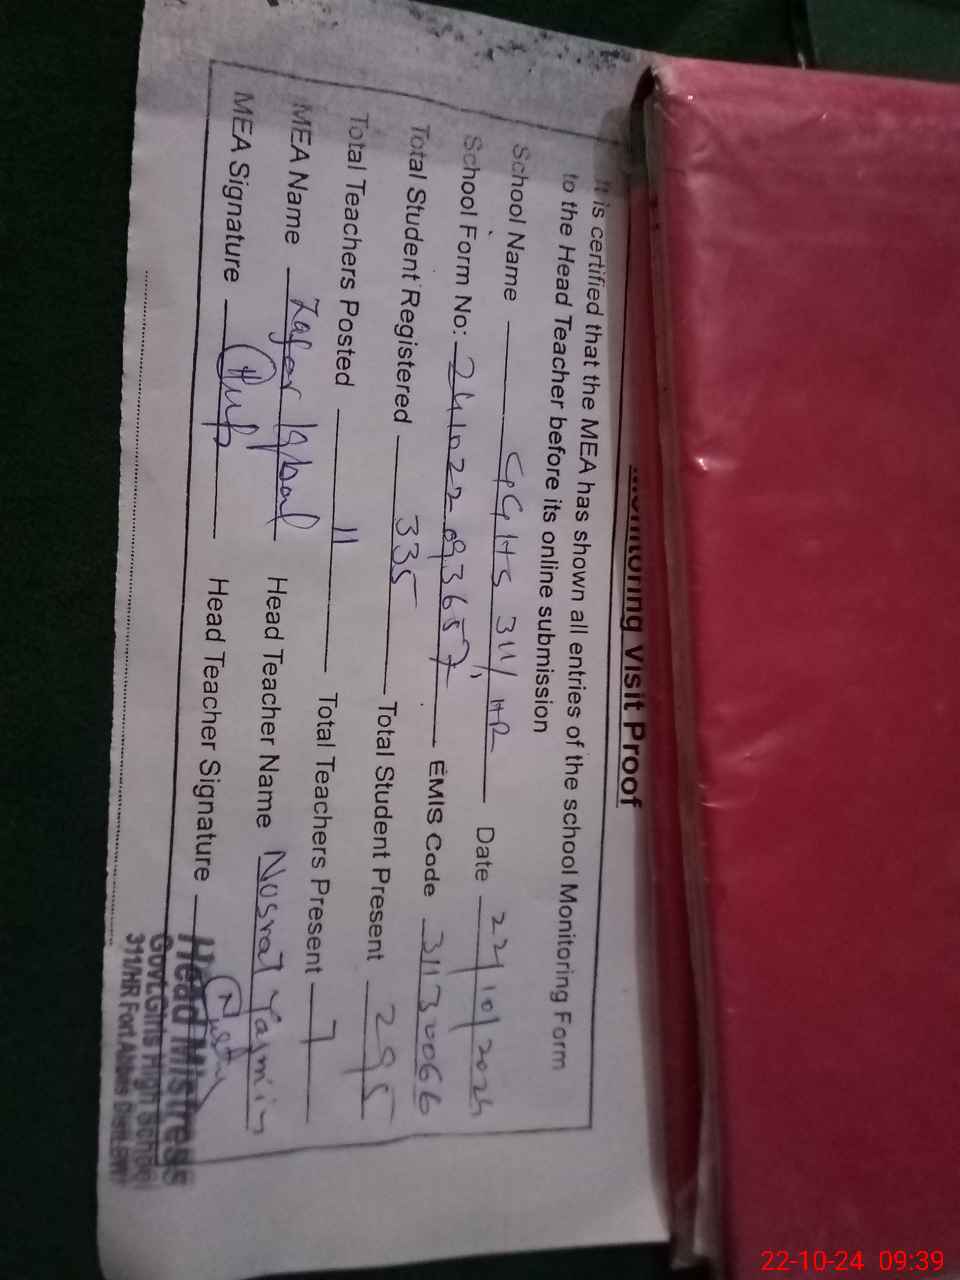 Monitoring Visit Proof
It is certified that the MEA has shown all entries of the school Monitoring Form
to the Head Teacher before its online submission
School Name GGHS 311/HR Date 22/10/2024
School Form No: 241022093657 EMIS Code 31130066
Total Student Registered 335 Total Student Present 295
Total Teachers Posted 11 Total Teachers Present 7
MEA Name Zafar Iqbal Head Teacher Name Nosrat Yasmin
MEA Signature Head Teacher Signature
Head Mistress
Govt.Girls High School
311/HR Fort Abbas Distt.BWN
22-10-24 09:39